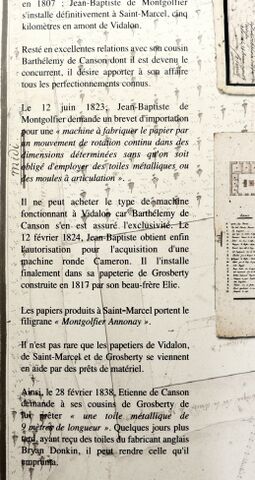 en 1807 ; Jean-Baptiste de Montgolfier
s'installe définitivement à Saint-Marcel, cinq
kilomètres en amont de Vidalon.
Resté en excellentes relations avec son cousin
Barthélemy de Canson dont il est devenu le
concurrent, il désire apporter à son affaire
tous les perfectionnements connus.
Le 12 juin 1823, Jean-Baptiste de
Montgolfier demande un brevet d'importation
pour une « machine à fabriquer le papier par
un mouvement de rotation continu dans des
dimensions déterminées sans qu'on soit
obligé d'employer des toiles métalliques ou
des moules à articulation ».
Il ne peut acheter le type de machine
fonctionnant à Vidalon car Barthélemy de
Canson s'en est assuré l'exclusivité. Le
12 février 1824, Jean-Baptiste obtient enfin
l'autorisation pour l'acquisition d'une
machine ronde Cameron. Il l'installe
finalement dans sa papeterie de Grosberty
construite en 1817 par son beau-frère Elie.
Les papiers produits à Saint-Marcel portent le
filigrane « Montgolfier Annonay ».
Il n'est pas rare que les papetiers de Vidalon,
de Saint-Marcel et de Grosberty se viennent
en aide par des prêts de matériel.
Ainsi, le 28 février 1838, Etienne de Canson
demande à ses cousins de Grosberty de
lui prêter « une toile métallique de
9 mètres de longueur ». Quelques jours plus
tard, ayant reçu des toiles du fabricant anglais
Bryan Donkin, il peut rendre celle qu'il
emprunta.